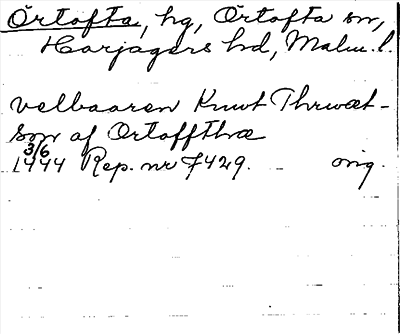 Örtofta, hg, Örtofta sn,
Harjagers hd, Malm. l.
velbaaren Knut Thrwæt-
søn af Ørtoffthæ
3/6
1444 Rep. nr 7429. orig.